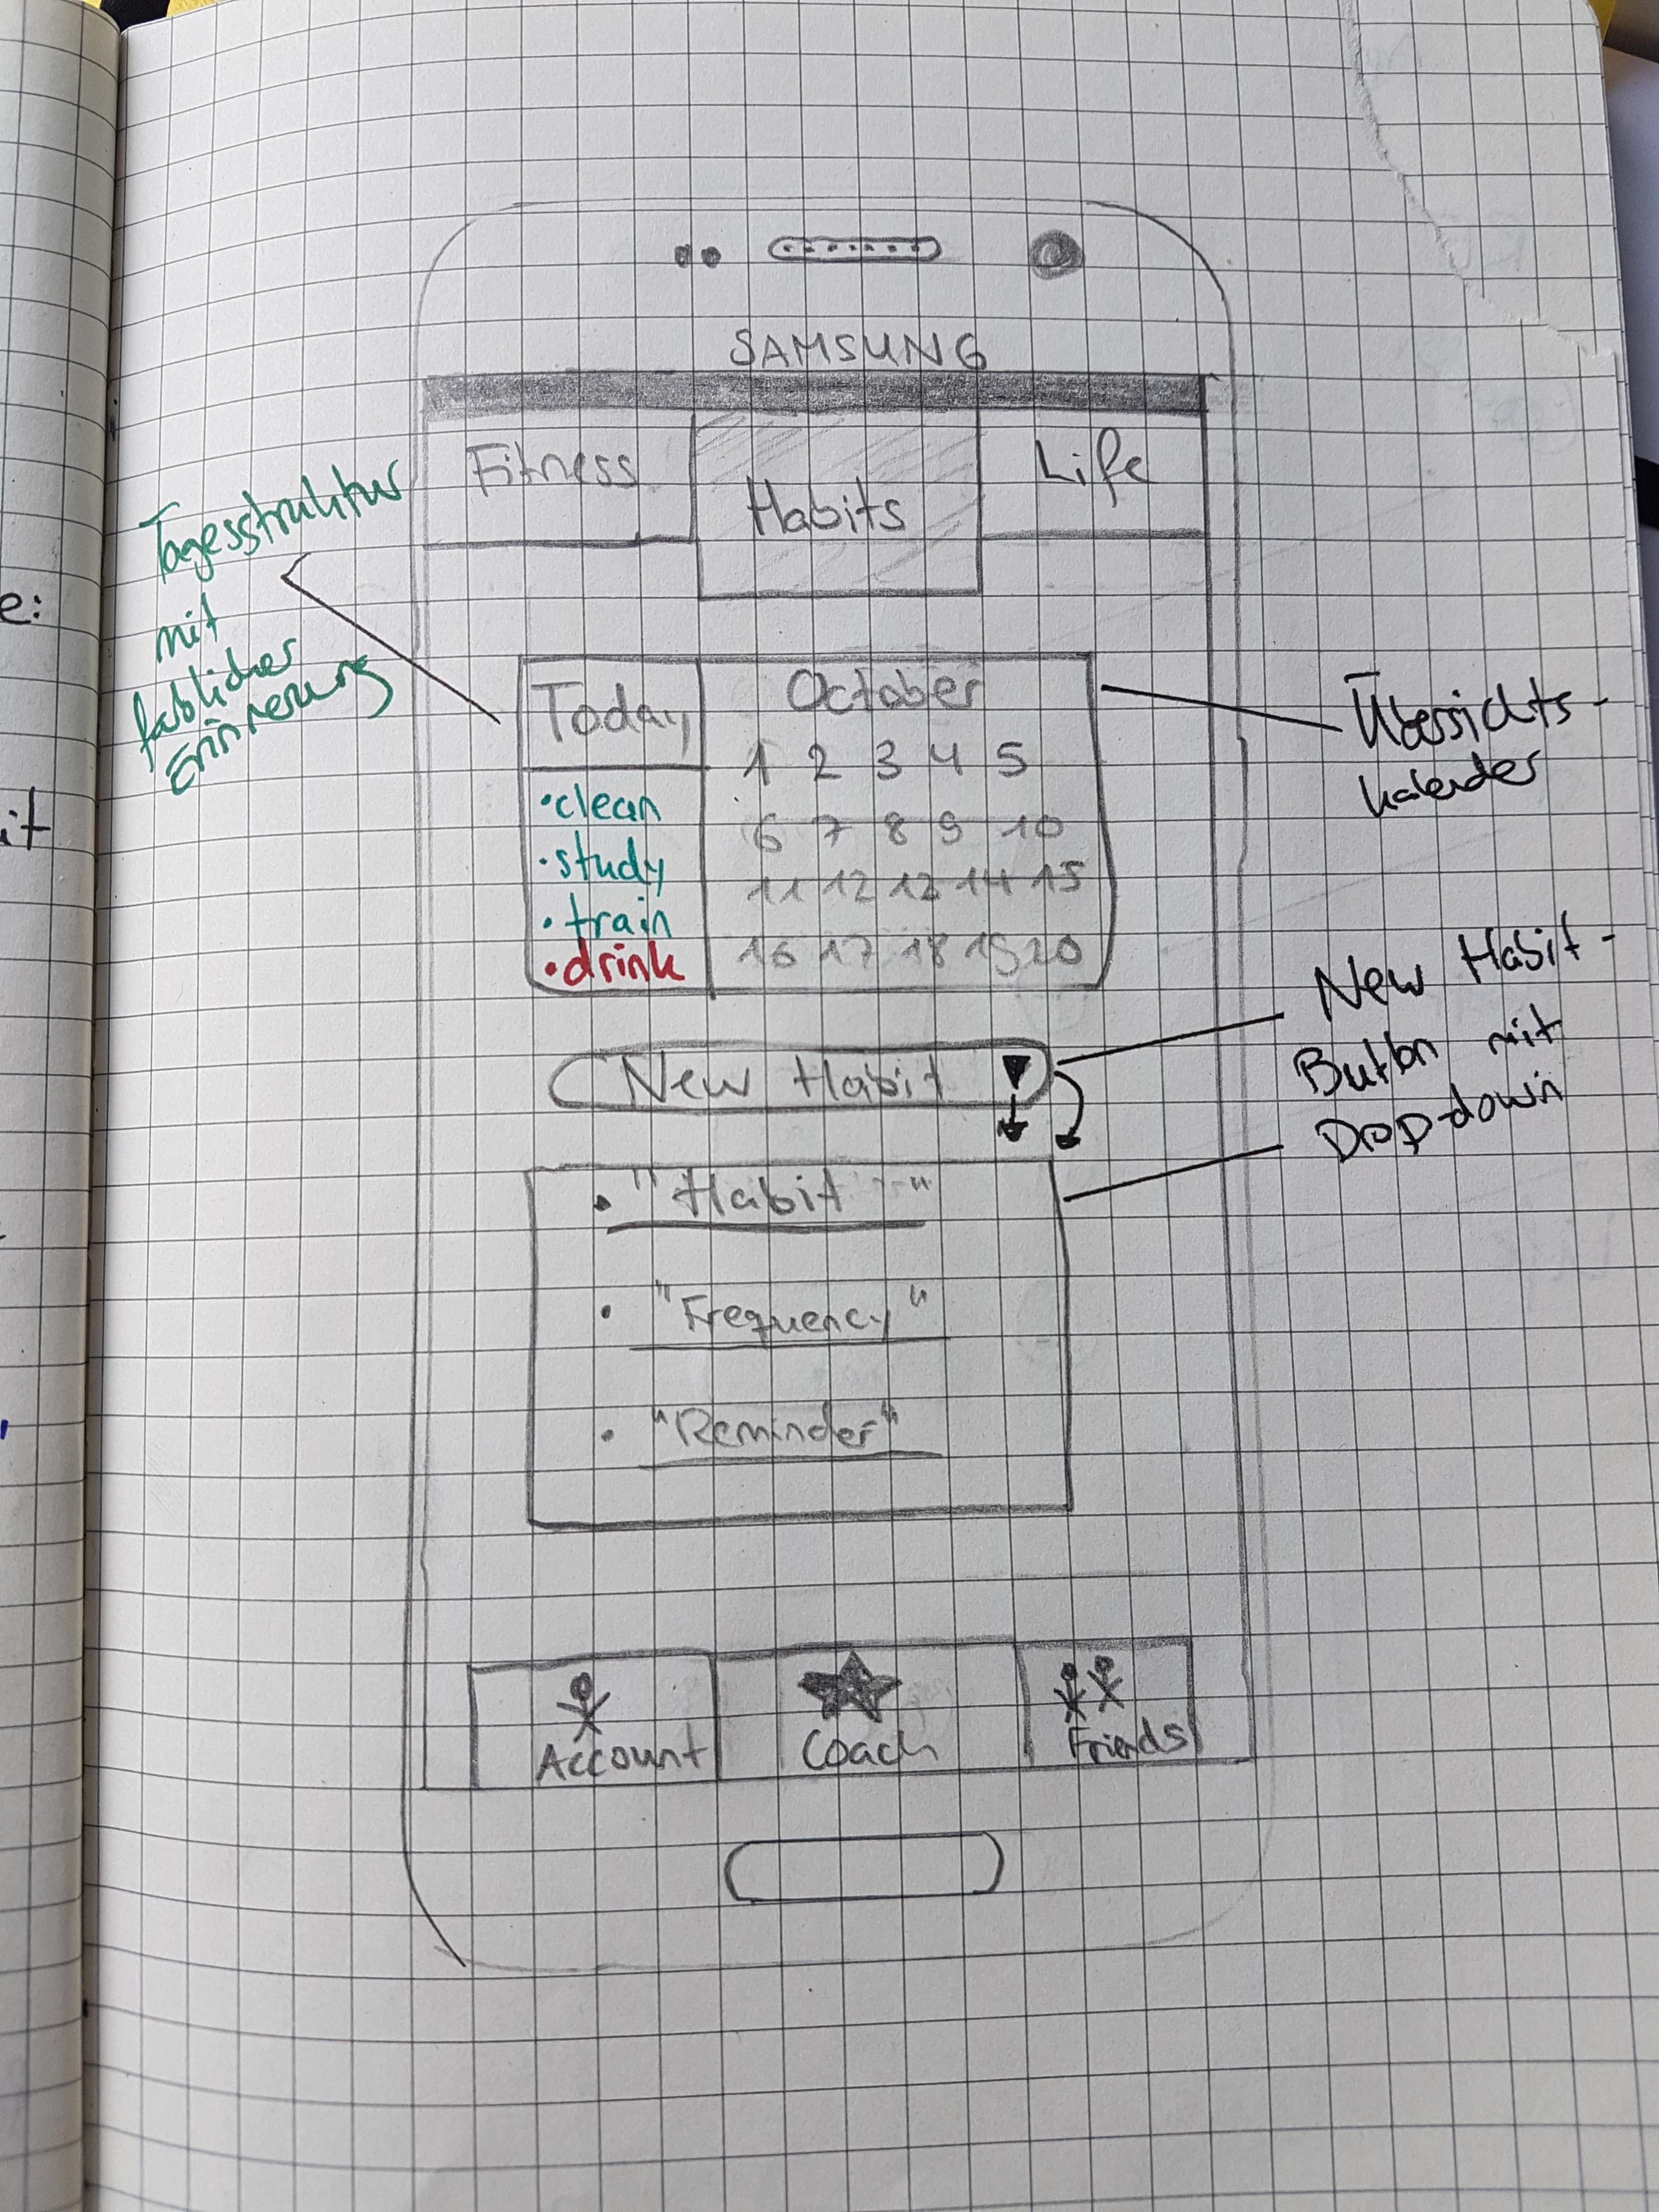 SAMSUNG
Fitness
Habits
Life
Tagesstruktur
mit
farblicher
Erinnerung
Today
•clean
•study
•train
•drink
October
1 2 3 4 5
6 7 8 9 10
11 12 13 14 15
16 17 18 19 20
Übersichts-
kalender
New Habit
New Habit-
Button mit
Drop-down
• "Habit"
• "Frequency"
• "Reminder"
Account
Coach
Friends
e:
it